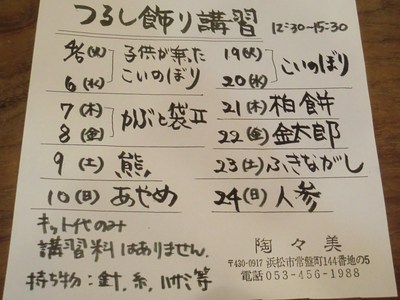 つるし飾り講習 12:30-15:30
4/5(火) 子供が乗った
6(水) こいのぼり
7(木) かぶと袋II
8(金)
9(土) 熊
10(日) あやめ
19(火) こいのぼり
20(水)
21(木) 柏餅
22(金) 金太郎
23(土) ふきながし
24(日) 人参
キット代のみ
講習料はありません.
持ち物:針.糸.ハサミ等
陶々美
〒430-0917 浜松市常盤町144番地の5
電話 053-456-1988